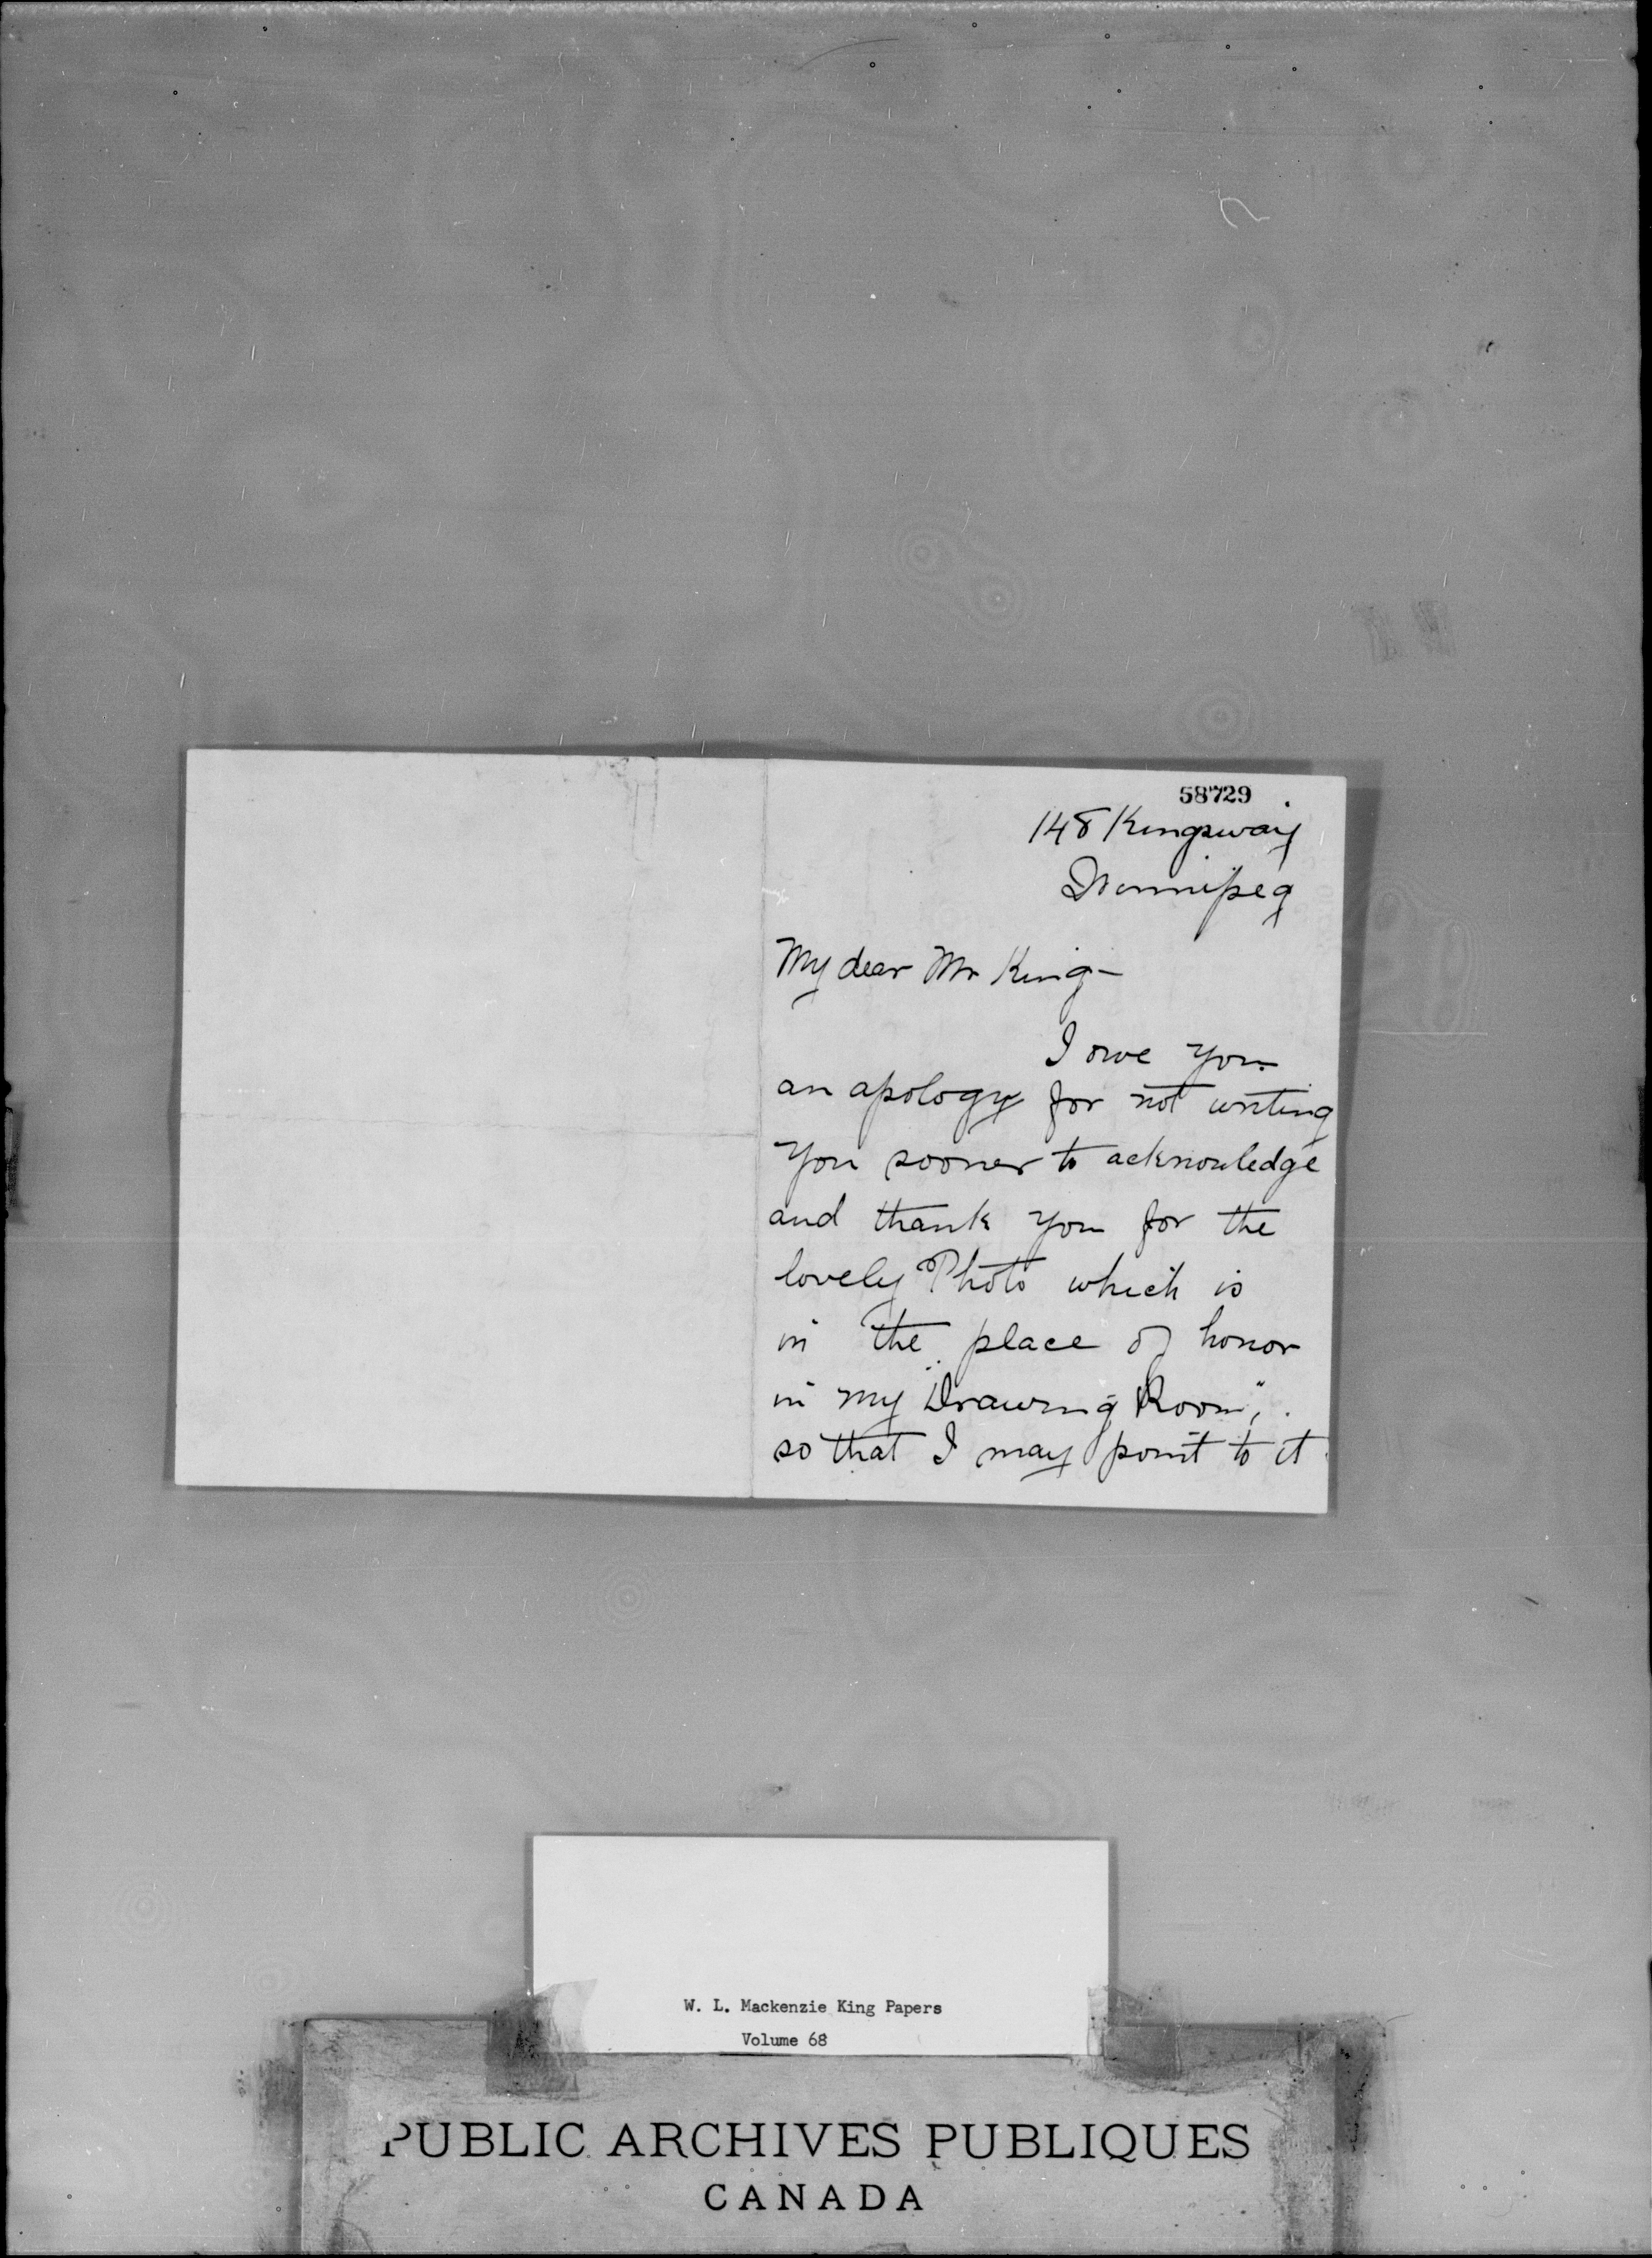 58729
148 Kingsway
Winnipeg
My dear Mr King-
I owe you
an apology for not writing
you sooner to acknowledge
and thank you for the
lovely Photo which is
in the place of honor
in my "Drawing Room",
so that I may point to it
W. L. Mackenzie King Papers
Volume 68
PUBLIC ARCHIVES PUBLIQUES
CANADA